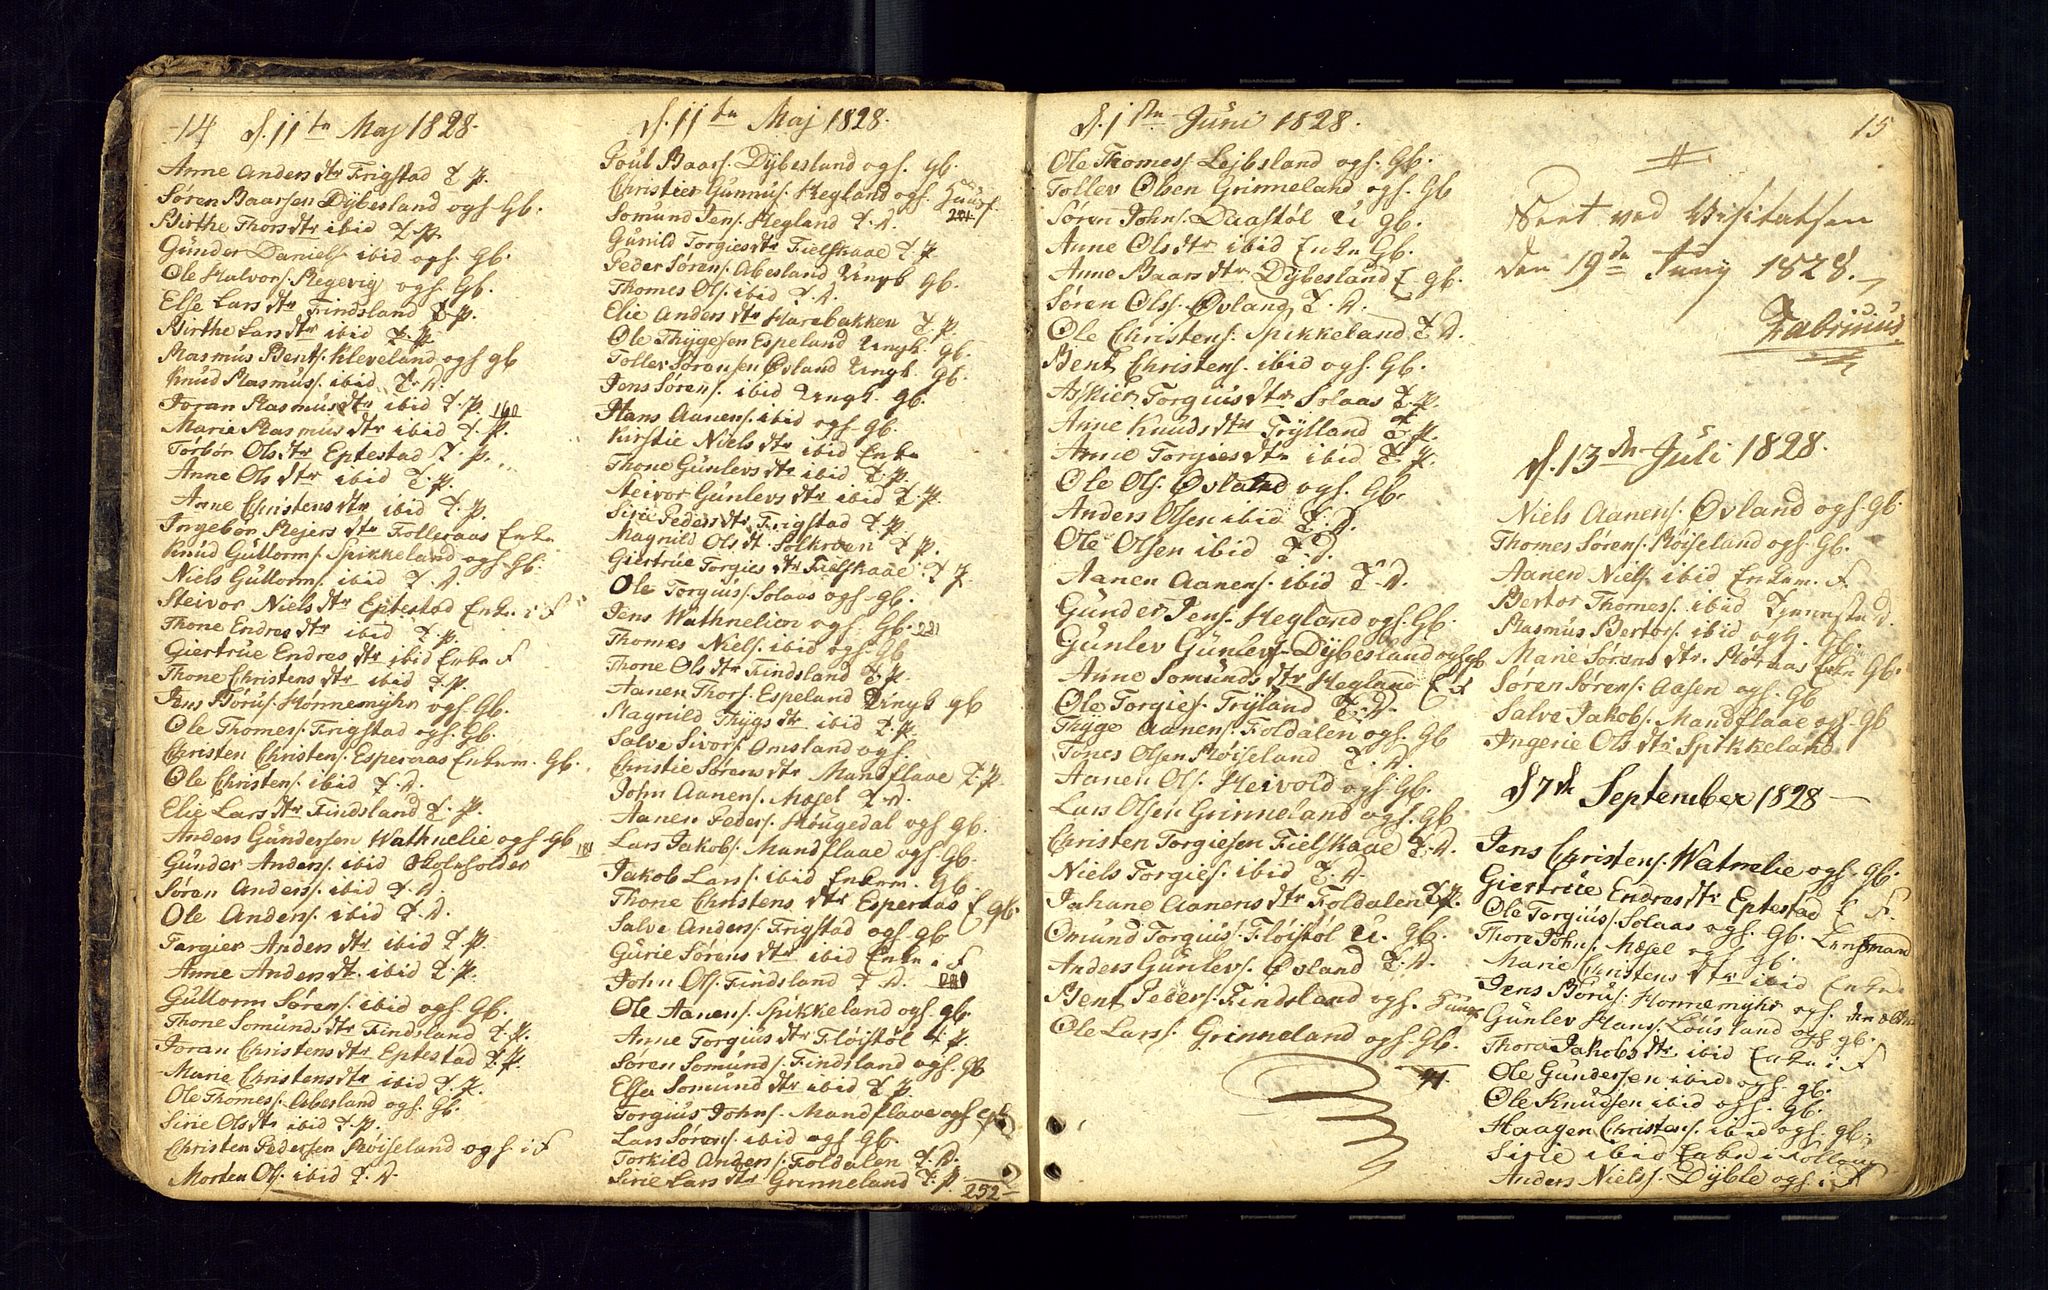 14 d. 11te Maj 1828.
Anne Anders dtr Frigstad T. P.
Søren Baarsen Dybesland og h. Gb.
Birthe Thors dtr ibid T. P.
Gunder Daniels. ibid og h. Gb.
Ole Halvors. Regevig og h. Gb.
Else Lars dtr Findsland T. P.
Birthe Lars dtr ibid T. P.
Rasmus Bents. Kleveland og h gb
Knud Rasmus. ibid T. D.
Joran Rasmus dtr ibid T. P. 160
Marie Rasmus dtr ibid T. P.
Torbor Ols dtr Eptestad T. P.
Anne Ols dtr ibid T. P.
Anne Christens dtr ibid T. P.
Ingebor Rejers dtr Folleraas Enke
Knud Guttorms. Spikkeland og h. Gb.
Niels Guttorms. ibid T. D.
Steivor Niels dtr Eptestad Enke i F
Thone Endres dtr ibid T. P.
Giertrue Endres dtr ibid Enke F
Thone Christens dtr ibid T. P.
Jens Børus. Hønnemyhr og h. Gb.
Ole Thomes. Frigstad og h. Gb.
Christen Christens. Esperaas Enkem. Gb.
Ole Christens. ibid T. D.
Elie Lars dtr Findsland T. P.
Anders Gundersen Wathnelie og h Gb 181
Gunder Anders. ibid Skoleholder
Søren Anders. ibid T. D.
Ole Anders. ibid T. D.
Targier Anders dtr ibid T. P.
Anne Anders dtr. ibid T. P.
Guttorm Sørens. ibid og h. Gb.
Thone Somunds dtr Findsland T. P.
Joran Christens dtr Eptestad T. P.
Marie Christens dtr ibid T. P.
Ole Thomes. Abesland og h. Gb.
Sirie Ols dtr ibid T. P.
Christen Pedersen Røiseland og h. i F
Morten Ols. ibid T. D.
d. 11te Maj 1828.
Poul Baars. Dybesland og h. Gb.
Christen Gunnus. Hegland og h. Huusf.
Somund Jens. Hegland T. D. 204
Gunild Torgies dtr Fielskaae T. P
Peder Sørens. Abesland Ungk. Gb.
Thomes Ols. ibid T. D.
Elie Anders dtr Harebakken T. P.
Ole Thygesen Espeland Ungk. Gb.
Tollev Søransen Øvland Ungk. Gb.
Jens Sørens. ibid Ungk. Gb.
Hans Aanens. ibid og h Gb.
Kirstie Niels dtr ibid Enke
Thone Gunlevs dtr ibid T. P.
Steivor Gunlevs dtr ibid T. P.
Sirie Peders dtr Frigstad T. P.
Magnild Ols dt. Solkroen T. P.
Giertrue Torgies dtr Fielskaae T. P
Ole Torgius. Solaas og h. Gb.
Jens Wathnelien og h. Gb. 221
Thomes Niels. ibid og h Gb
Thone Ols dtr Findsland T. P.
Aanen Thors. Espeland Ungk Gb
Magnild Thygs dtr ibid T. P.
Salve Sivors. Omsland og h.
Christie Sørens dtr Mandflaae T. P.
John Aanens. Mæsel T. D.
Aanen Peders. Hougedal og h Gb.
Lars Jakobs. Mandflaae og h. Gb.
Jakob Lars. ibid Enkem. Gb.
Thone Christens dtr Esperaas E Gb.
Salve Anders. Frigstad og h gb
Gurie Sørens dtr ibid Enke i F
John Ols. Findsland T. D.
Ole Aanens. Spikkeland og h. Gb.
Anne Torgius dtr Fløistøl T. P
Søren Somunds. Findsland og h. Gb
Else Somund dtr ibid T. P.
Torgius Johns. Mandflaae og h Gb
Lars Sørens. ibid og h Gb.
Torkild Anders. Foldalen T. D.
Sirie Lars dtr Grinneland T. P. 252
d. 1ste Juni 1828.
Ole Thomes. Lejbsland og h. Gb.
Tollev Olsen Grinneland og h. Gb
Søren Johns. Daastøl U. Gb.
Anne Ols dtr ibid Enke Gb.
Anne Baars dtr Dybesland E Gb.
Søren Ols. Øvland T. D.
Ole Christens. Spikkeland T. D.
Bent Christens. ibid og h. Gb.
Askier Torgius dtr Solaas T. P.
Anne Knuds dtr Trylland T. P.
Anne Torgies dtr ibid T. P.
Ole Ols. Øvland og h. Gb.
Anders Olsen ibid T. D.
Ole Olsen ibid T. D.
Aanen Aanens. ibid T. D.
Gunder Jens. Hegland og h. Gb.
Gunlev Gunlevs. Dybesland og h Gb
Anne Somunds dtr Hegland E F
Ole Torgies. Tryland T. D.
Thyge Aanens. Foldalen og h. Gb
Tones Olsen Røiseland T. D.
Aanen Ols. Heivold og h. Gb.
Lars Olsen Grinneland og h. Gb
Christen Torgiesen Fielskaae T. D.
Niels Torgies. ibid T. D.
Jahane Aanens dtr Foldalen T. P.
Omund Torguis. Fløistøl U. Gb.
Anders Gunlevs. Øvland T. D.
Bent Peders. Findsland og h. Huusf.
Ole Lars. Grinneland og h. Gb.
15
Seet ved Visitatsen
den 19de Juny 1828.
Fabrinus
d. 13de Juli 1828.
Niels Aanens. Øvland og h. Gb.
Thomes Sørens. Røiseland og h. Gb.
Aanen Niels. ibid Enkem. F.
Bertor Thomes. ibid Tienneste D.
Rasmus Bertors. ibid og h. Gb.
Marie Sørens dtr. Røraas Enke Gb.
Søren Sørens. Aasen og h. Gb
Salve Jakobs. Mandflaae og h. Gb
Ingerie Ols dtr Spikkeland
d 7de September 1828
Jens Christens. Watnelie og h. Gb.
Giertrue Endres dtr Eptestad E F.
Ole Torgius. Solaas og h. Gb. Lensmand
Thore Johns. Mæsel og h. Gb.
Marie Christens dtr ibid Enke
Jens Børus. Hønnemyhr og h. den ældre
Gunlev Hans. Løusland og h Gb.
Thora Jakobs dtr ibid Enke i F
Ole Gundersen ibid og h. Gb.
Ole Knudsen ibid og h. Gb.
Haagen Christens. ibid og h. Gb.
Sirie ibid Enke i
Anders Niels. Dyble og h. i F